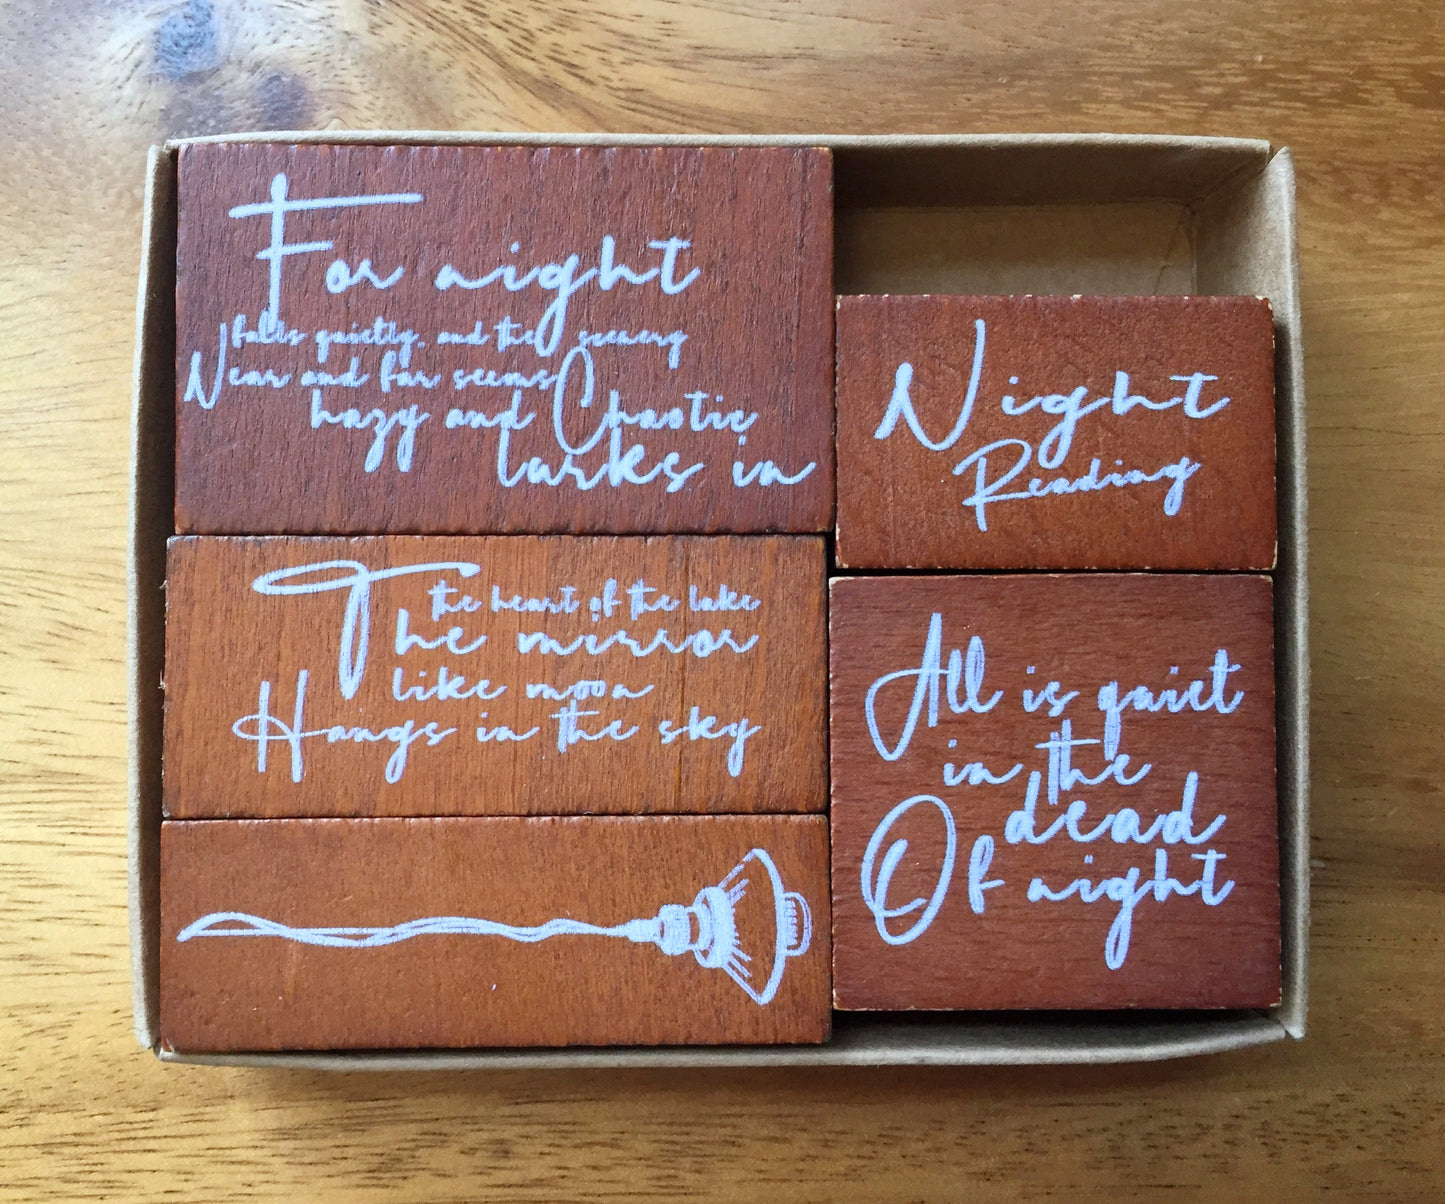 For night
falls quietly, and the scenery
Near and far seems
hazy and Chaotic
lurks in
Night
Reading
the heart of the lake
The mirror
like moon
Hangs in the sky
All is quiet
in the
dead
Of night